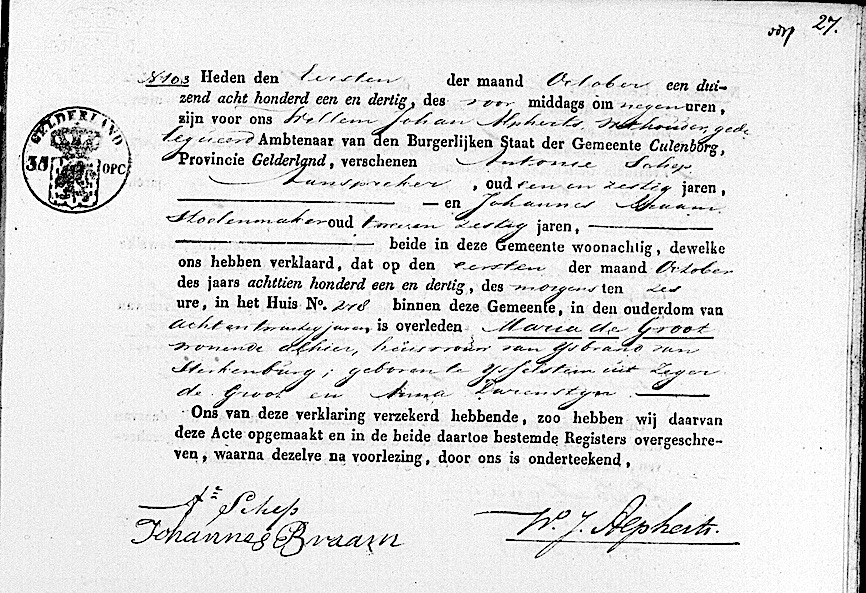 27.
N 103 Heden den Eersten der maand October een dui-
zend acht honderd een en dertig, des voor middags om negen uren,
zijn voor ons Willem Johan Alpherts, Wethouder, gede
legueerd Ambtenaar van den Burgerlijken Staat der Gemeente Culenborg,
Provincie Gelderland, verschenen Antonie Schep
Aanspreker, oud een en zestig jaren,
— en Johannes Braam
Stoelenmaker oud twee en zestig jaren,
beide in deze Gemeente woonachtig, dewelke
ons hebben verklaard, dat op den eersten der maand October
des jaars achttien honderd een en dertig, des morgens ten zes
ure, in het Huis No. 218 binnen deze Gemeente, in den ouderdom van
acht en twintig jaren, is overleden Maria de Groot
wonende alhier, huisvrouw van Ysbrand van
Sterkenburg; geboren te Ysselstein uit Zeger
de Groot en Anna
Ons van deze verklaring verzekerd hebbende, zoo hebben wij daarvan
deze Acte opgemaakt en in de beide daartoe bestemde Registers overgeschre-
ven, waarna dezelve na voorlezing, door ons is onderteekend,
GELDERLAND
35 OPC
Schep
Johannes Braam
Wm. J. Alpherts.